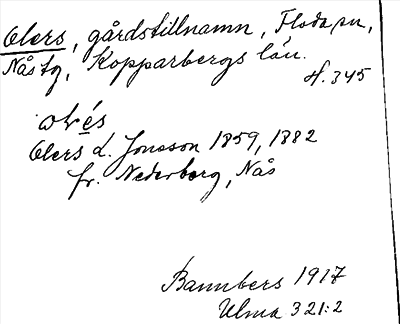 Olers, gårdstillnamn, Floda sn,
Nås tg, Kopparbergs län.
H. 345
Olers d. Jonsson 1859, 1882
fr. Nederborg, Nås
Bannbers 1917
Ulma 321:2